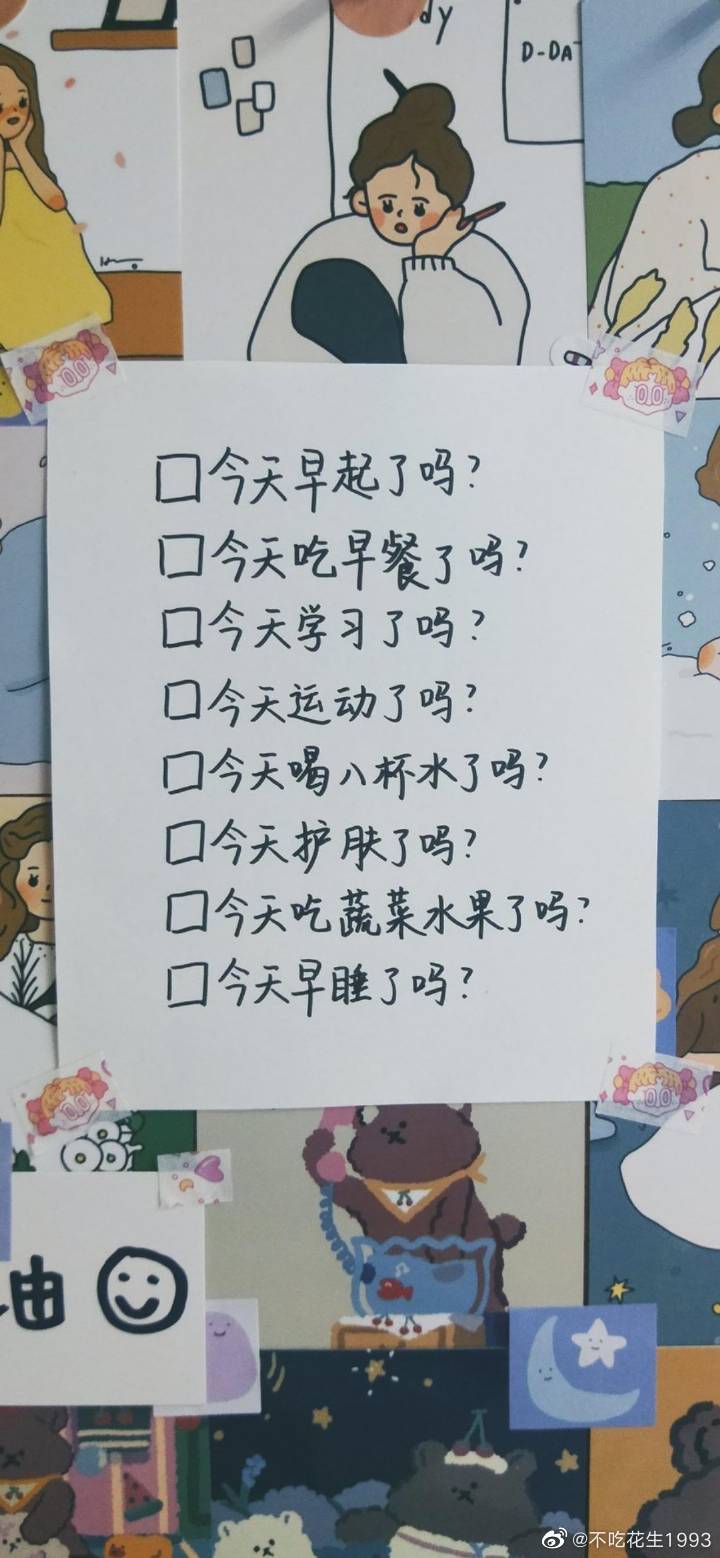 dy
D-DA
□今天早起了吗?
□今天吃早餐了吗?
□今天学习了吗?
□今天运动了吗?
□今天喝八杯水了吗?
□今天护肤了吗?
□今天吃蔬菜水果了吗?
□今天早睡了吗?
油
@不吃花生1993